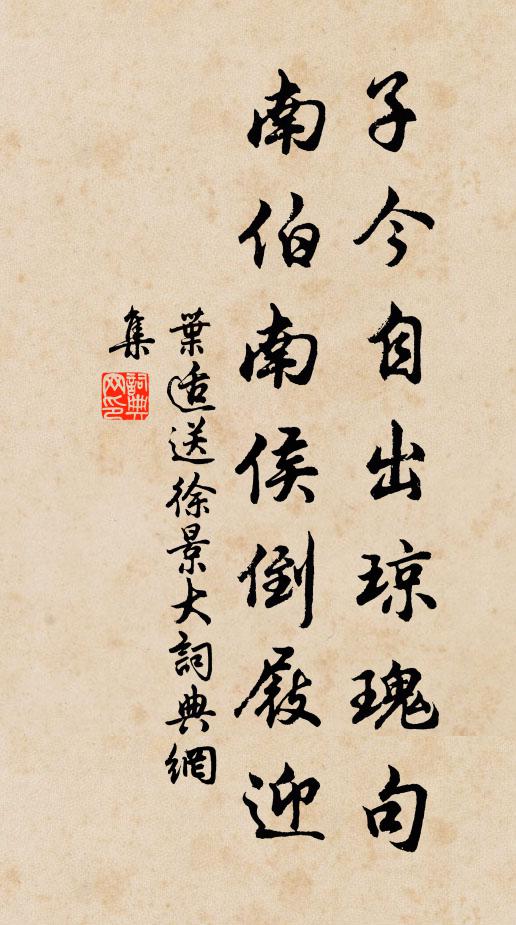 子今自出琼瑰句
南伯南侯倒屐迎
葉适送徐景大詞典網
集
詞典
网印